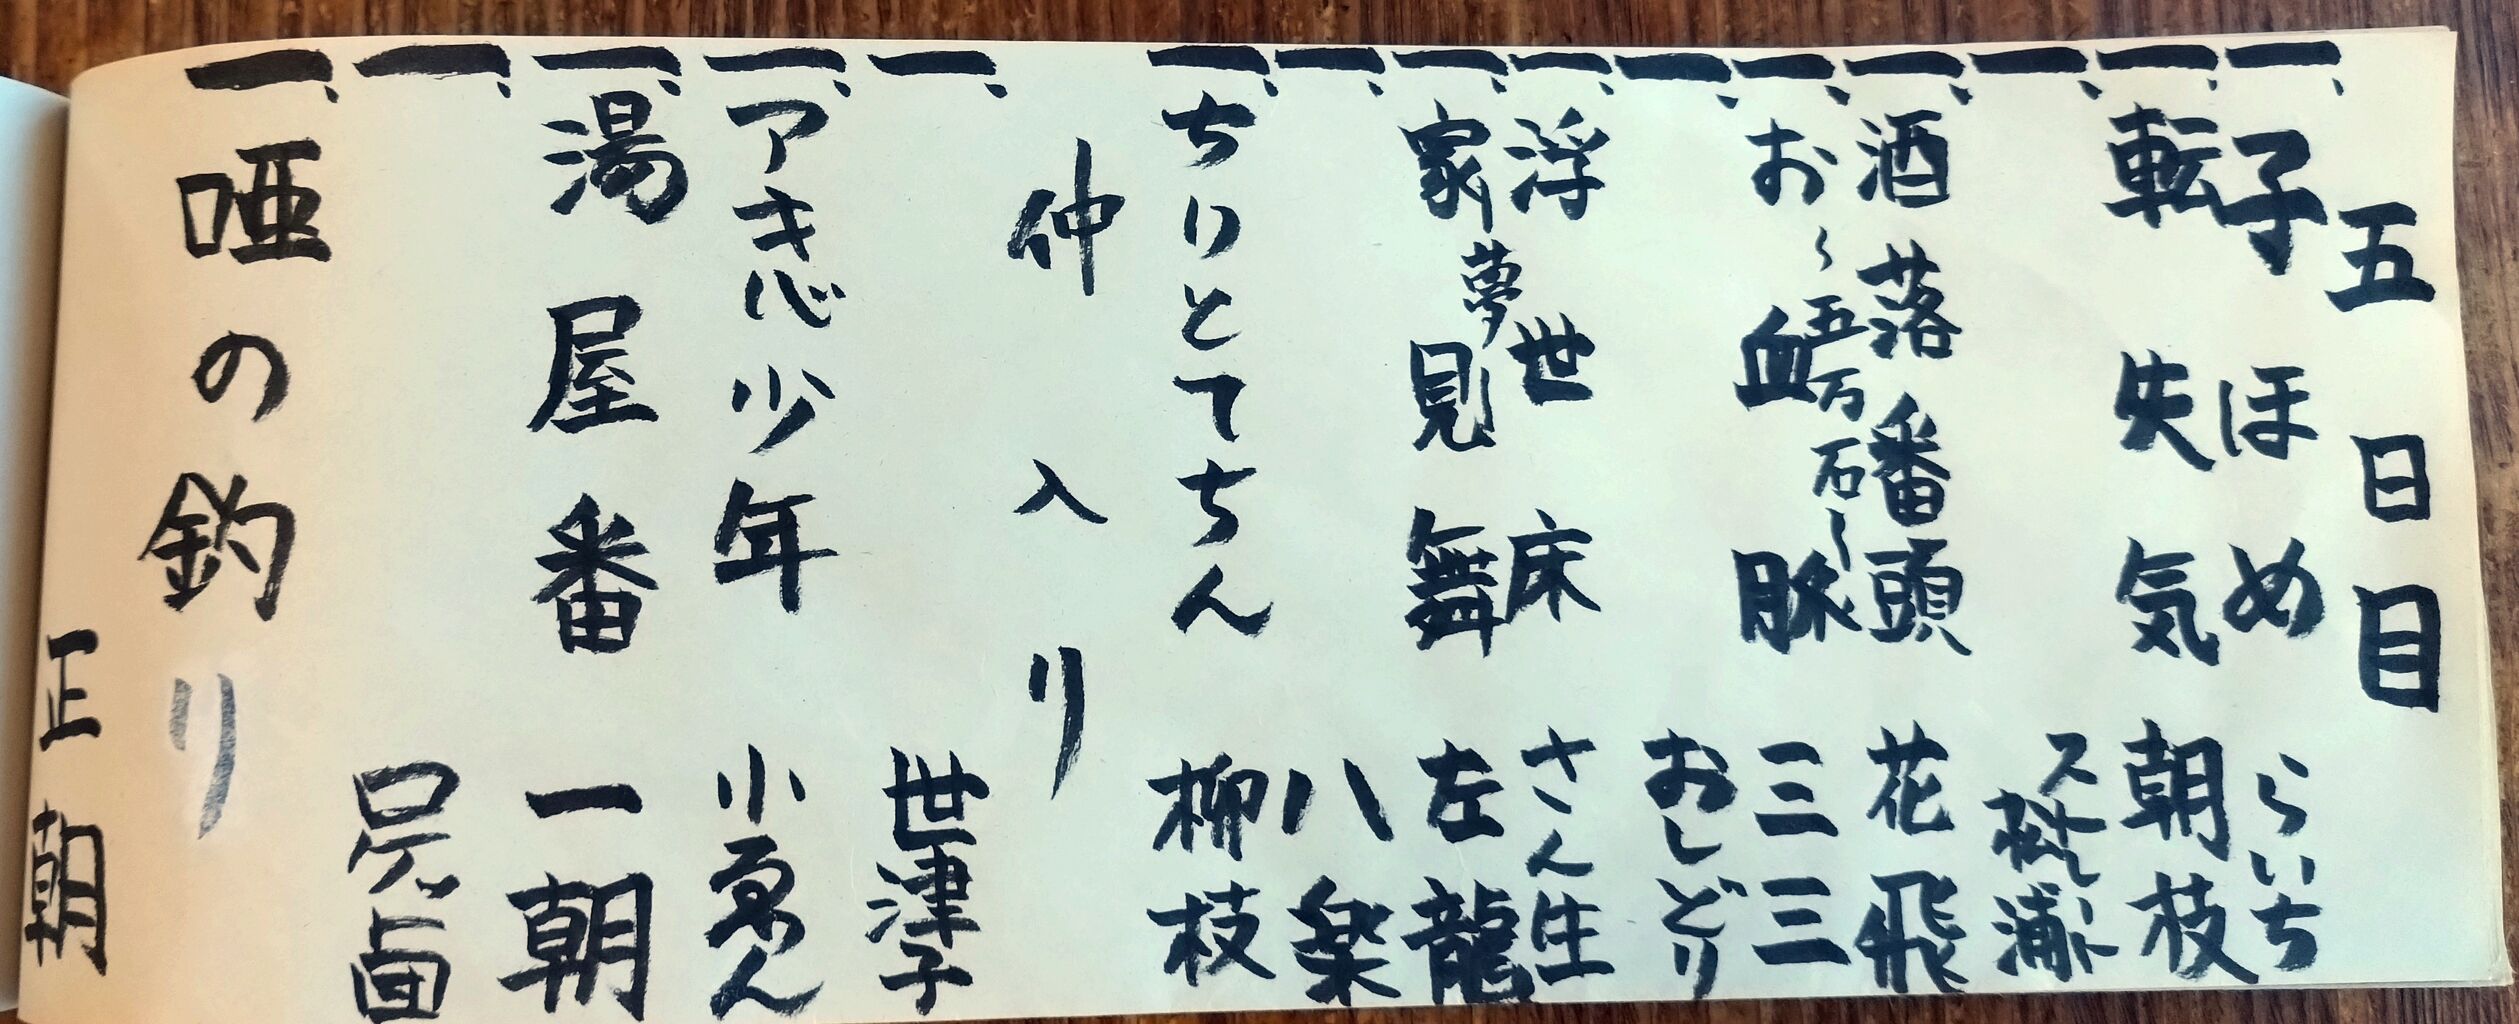 五日目
一、子ほめ らいち
一、転失気 朝枝
一、 松浦
一、酒落番頭 花飛
一、お血脈 三三
〜五万石〜
一、 おしどり
一、浮世床 さん生
夢
一、家見舞 左龍
一、 八楽
一、ちりとてちん 柳枝
仲入り
一、 世津子
一、アキバ少年 小ゑん
一、湯屋番 一朝
一、 ロケット団
一、唖の釣り 正朝